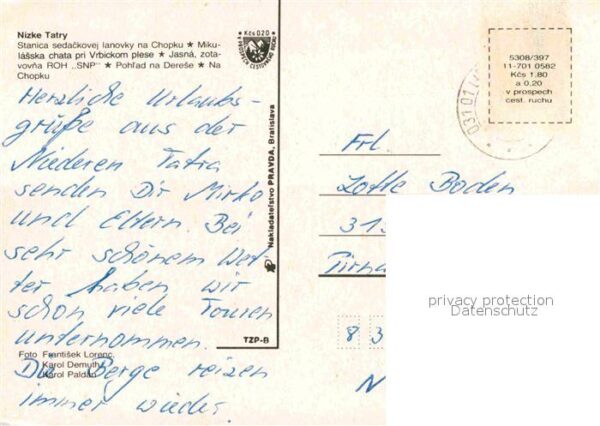 Nízke Tatry
Stanica sedačkovej lanovky na Chopku ★ Miku-
lášska chata pri Vrbickom plese ★ Jasná, zota-
vovňa ROH „SNP“ ★ Pohľad na Dereše ★ Na
Chopku
Kčs 0,20
V PROSPECH CESTOVNÉHO RUCHU
Herzliche Urlaubs-
grüße aus der
Niederen Tatra
senden Dir Mirko
und Eltern. Bei
sehr schönem Wet-
ter haben wir
schon viele Touren
unternommen.
Die Berge reizen
immer wieder
Foto František Lorenc,
Karol Demuth
Karol Paldán
Nakladateľstvo PRAVDA, Bratislava
TZP-B
5308/397
11-701 0582
Kčs 1.80
a 0,20
v prospech
cest. ruchu
03101
Frl.
Lotte Boden
Pirna
8 3
N
privacy protection
Datenschutz